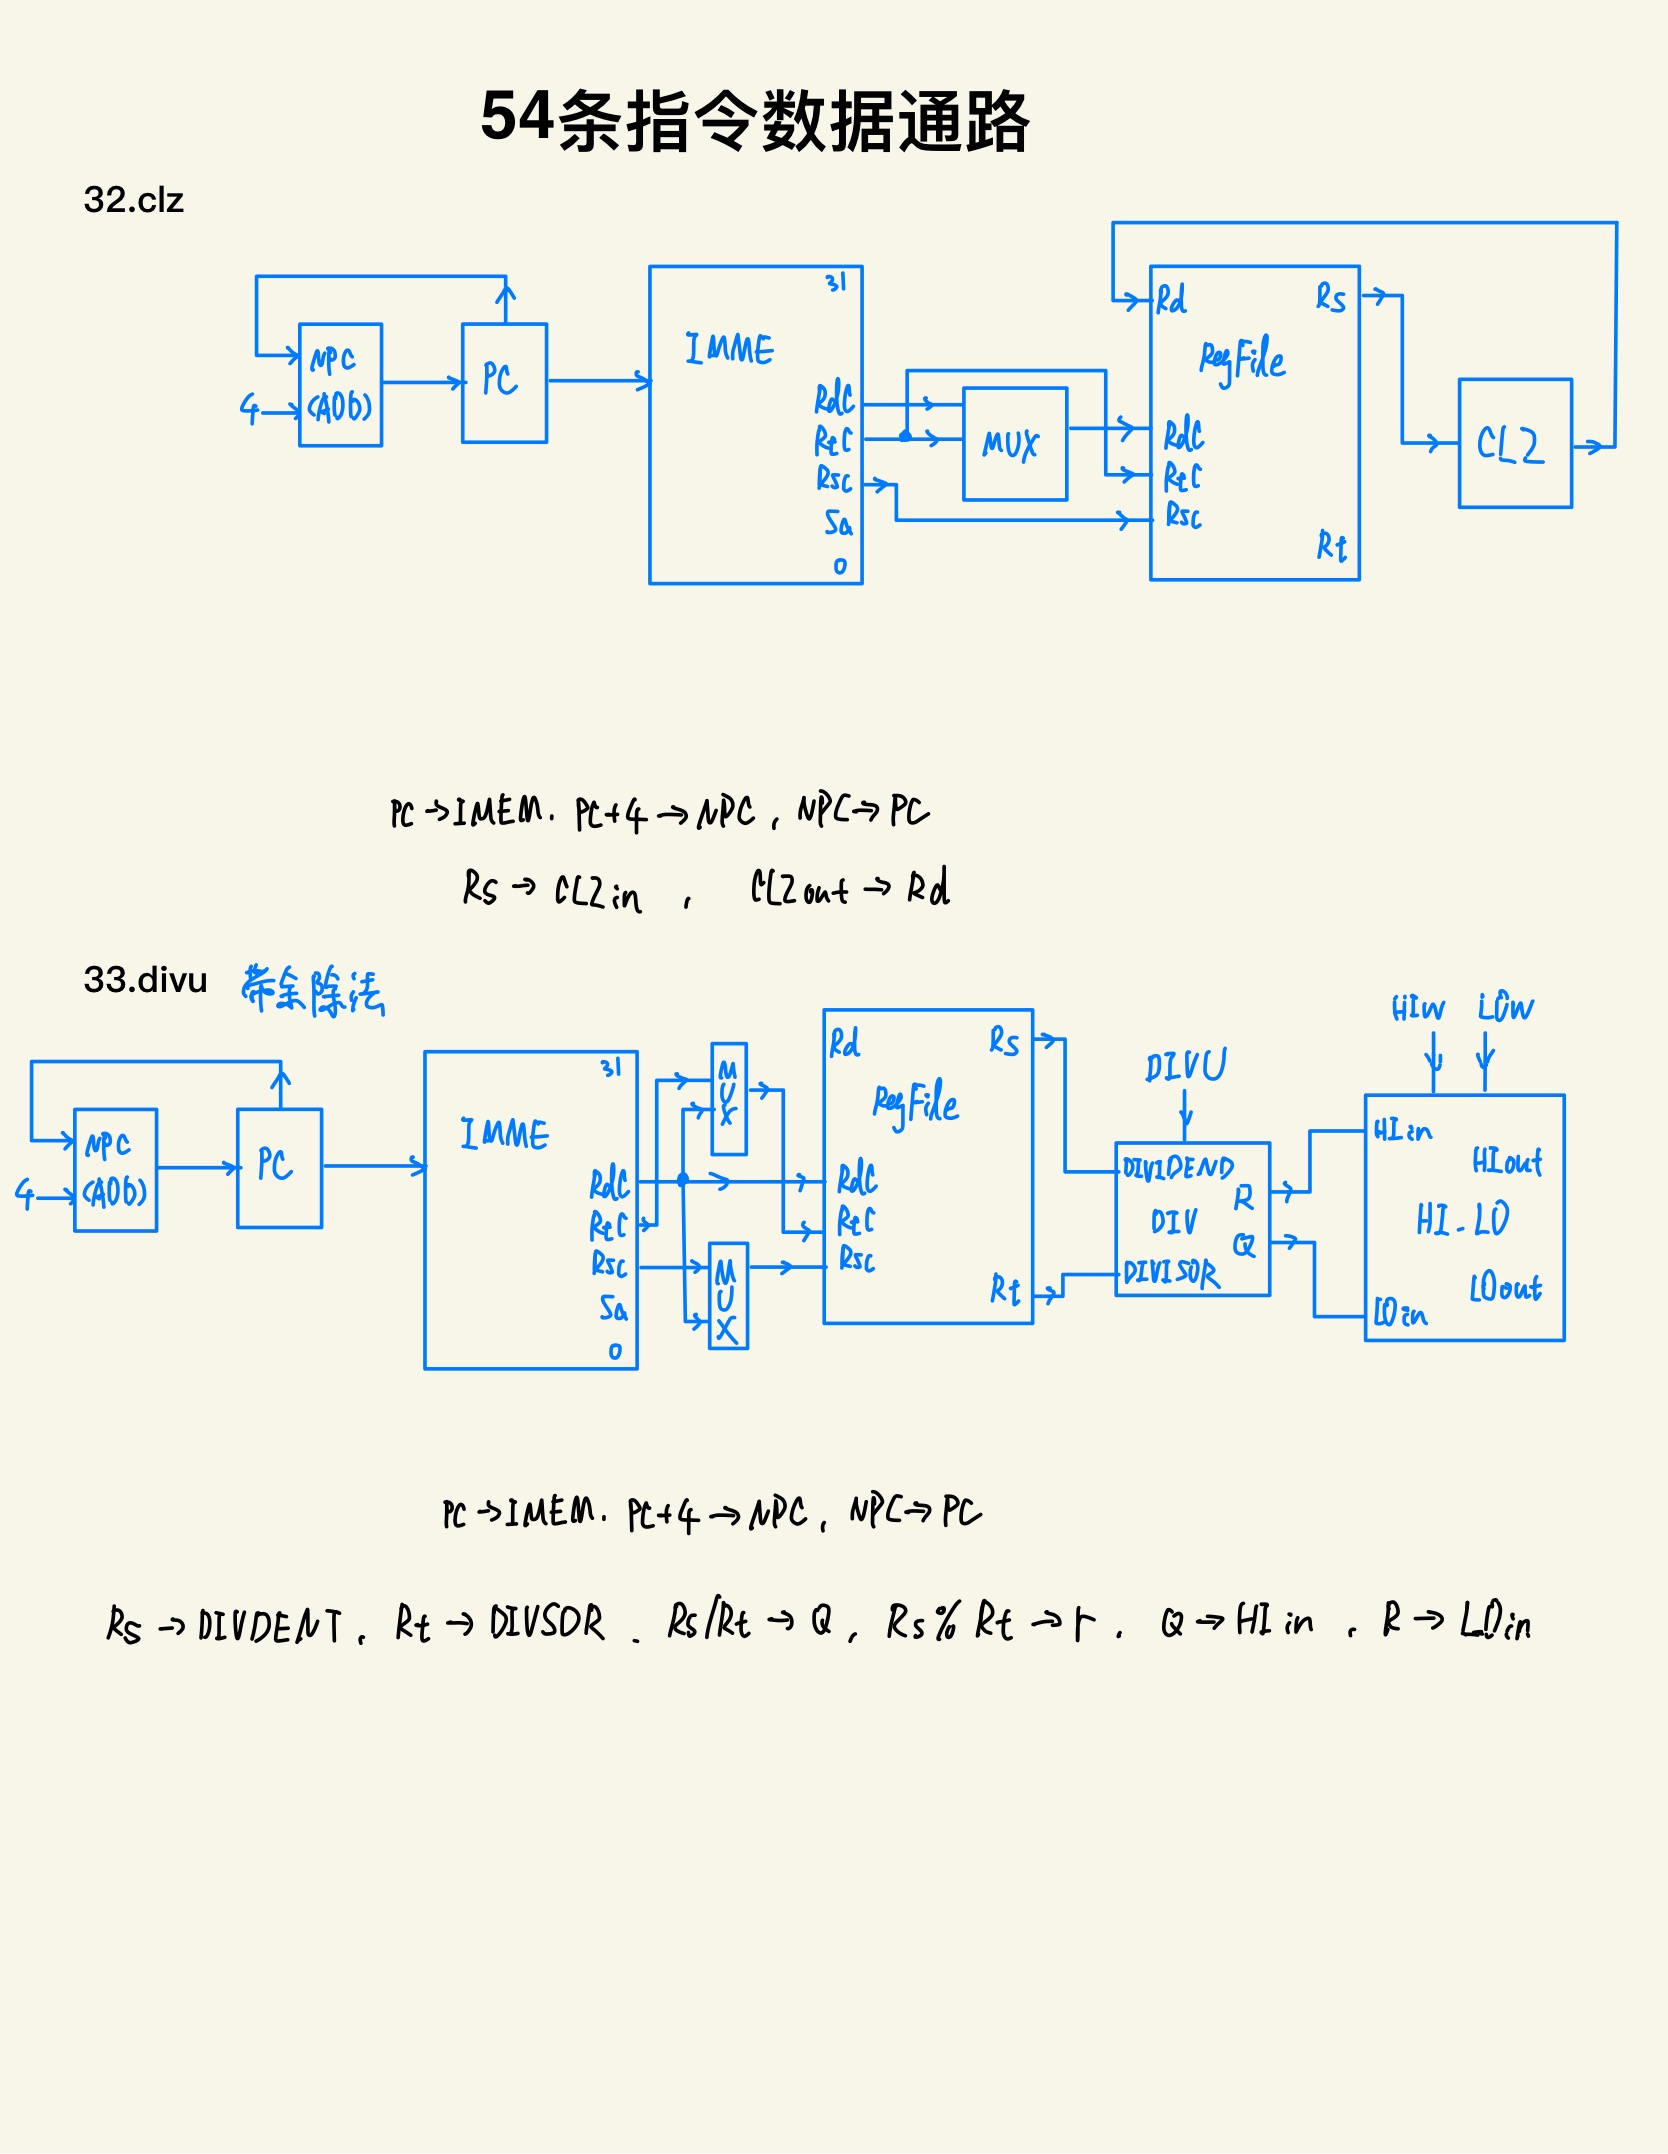 54条指令数据通路
32.clz
31
IMME
NPC
(ADD)
4
PC
RdC
RtC
Rsc
Sa
0
MUX
Rd
Rs
RegFile
RdC
RtC
Rsc
Rt
CLZ
PC→IMEM. PC+4→NPC, NPC→PC
Rs→CLZin , CLZout→Rd
33.divu 带余除法
31
IMME
NPC
(ADD)
4
PC
RdC
RtC
Rsc
Sa
0
MUX
MUX
Rd
Rs
RegFile
RdC
RtC
Rsc
Rt
DIVU
DIVIDEND
R
DIV
Q
DIVISOR
HIW LOW
HIin
HIout
HI-LO
LOout
LOin
PC→IMEM. PC+4→NPC, NPC→PC
Rs→DIVDENT, Rt→DIVSOR. Rs/Rt→Q, Rs%Rt→r. Q→HIin, R→LOin